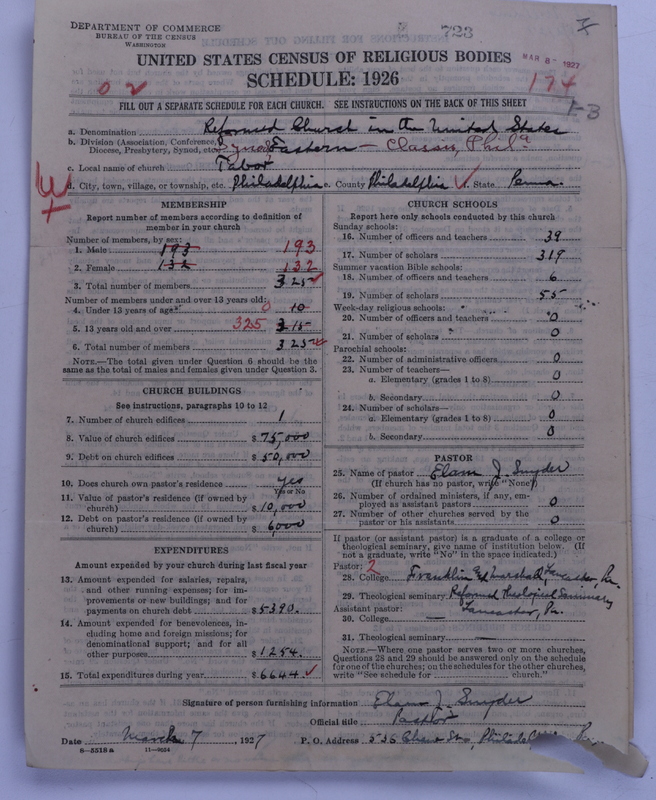 DEPARTMENT OF COMMERCE
BUREAU OF THE CENSUS
WASHINGTON
723
UNITED STATES CENSUS OF RELIGIOUS BODIES
MAR 8- 1927
SCHEDULE: 1926
0 2
174
1-3
FILL OUT A SEPARATE SCHEDULE FOR EACH CHURCH. SEE INSTRUCTIONS ON THE BACK OF THIS SHEET
a. Denomination Reformed Church in the United States
b. Division (Association, Conference, Diocese, Presbytery, Synod, etc. Synod Eastern — Classis, Phila
c. Local name of church Tabor
d. City, town, village, or township, etc. Philadelphia e. County Philadelphia f. State Penna.
MEMBERSHIP
Report number of members according to definition of
member in your church
Number of members, by sex:
1. Male 193 193
2. Female 132 132
3. Total number of members 325
Number of members under and over 13 years old:
4. Under 13 years of age 0 10
5. 13 years old and over 325 315
6. Total number of members 325
NOTE.—The total given under Question 6 should be the
same as the total of males and females given under Question 3.
CHURCH BUILDINGS
See instructions, paragraphs 10 to 12
7. Number of church edifices 1
8. Value of church edifices $ 75,000
9. Debt on church edifices $ 50,000
10. Does church own pastor's residence yes
Yes or No
11. Value of pastor's residence (if owned by
church) $ 10,000
12. Debt on pastor's residence (if owned by
church) $ 6000
EXPENDITURES
Amount expended by your church during last fiscal year
13. Amount expended for salaries, repairs,
and other running expenses; for im-
provements or new buildings; and for
payments on church debt $ 5390.
14. Amount expended for benevolences, in-
cluding home and foreign missions; for
denominational support; and for all
other purposes $ 1254.
15. Total expenditures during year $ 6644.
CHURCH SCHOOLS
Report here only schools conducted by this church
Sunday schools:
16. Number of officers and teachers 39
17. Number of scholars 319
Summer vacation Bible schools:
18. Number of officers and teachers 6
19. Number of scholars 55
Week-day religious schools:
20. Number of officers and teachers 0
21. Number of scholars 0
Parochial schools:
22. Number of administrative officers 0
23. Number of teachers—
a. Elementary (grades 1 to 8) 0
b. Secondary 0
24. Number of scholars—
a. Elementary (grades 1 to 8) 0
b. Secondary 0
PASTOR
25. Name of pastor Elam J. Snyder
(If church has no pastor, write "None")
26. Number of ordained ministers, if any, em-
ployed as assistant pastors 0
27. Number of other churches served by the
pastor or his assistants 0
If pastor (or assistant pastor) is a graduate of a college or
theological seminary, give name of institution below. (If
not a graduate, write "No" in the space indicated:)
Pastor: 2
28. College Franklin and Marshall Lancaster, Pa.
29. Theological seminary Reformed Theological Seminary
Assistant pastor: Lancaster, Pa.
30. College —
31. Theological seminary —
NOTE.—Where one pastor serves two or more churches,
Questions 28 and 29 should be answered only on the schedule
for one of the churches; on the schedules for the other churches,
write "See schedule for church."
Signature of person furnishing information Elam J. Snyder
Official title Pastor
Date March 7, 1927 P. O. Address St., Philadelphia
8-5318a 11-9024